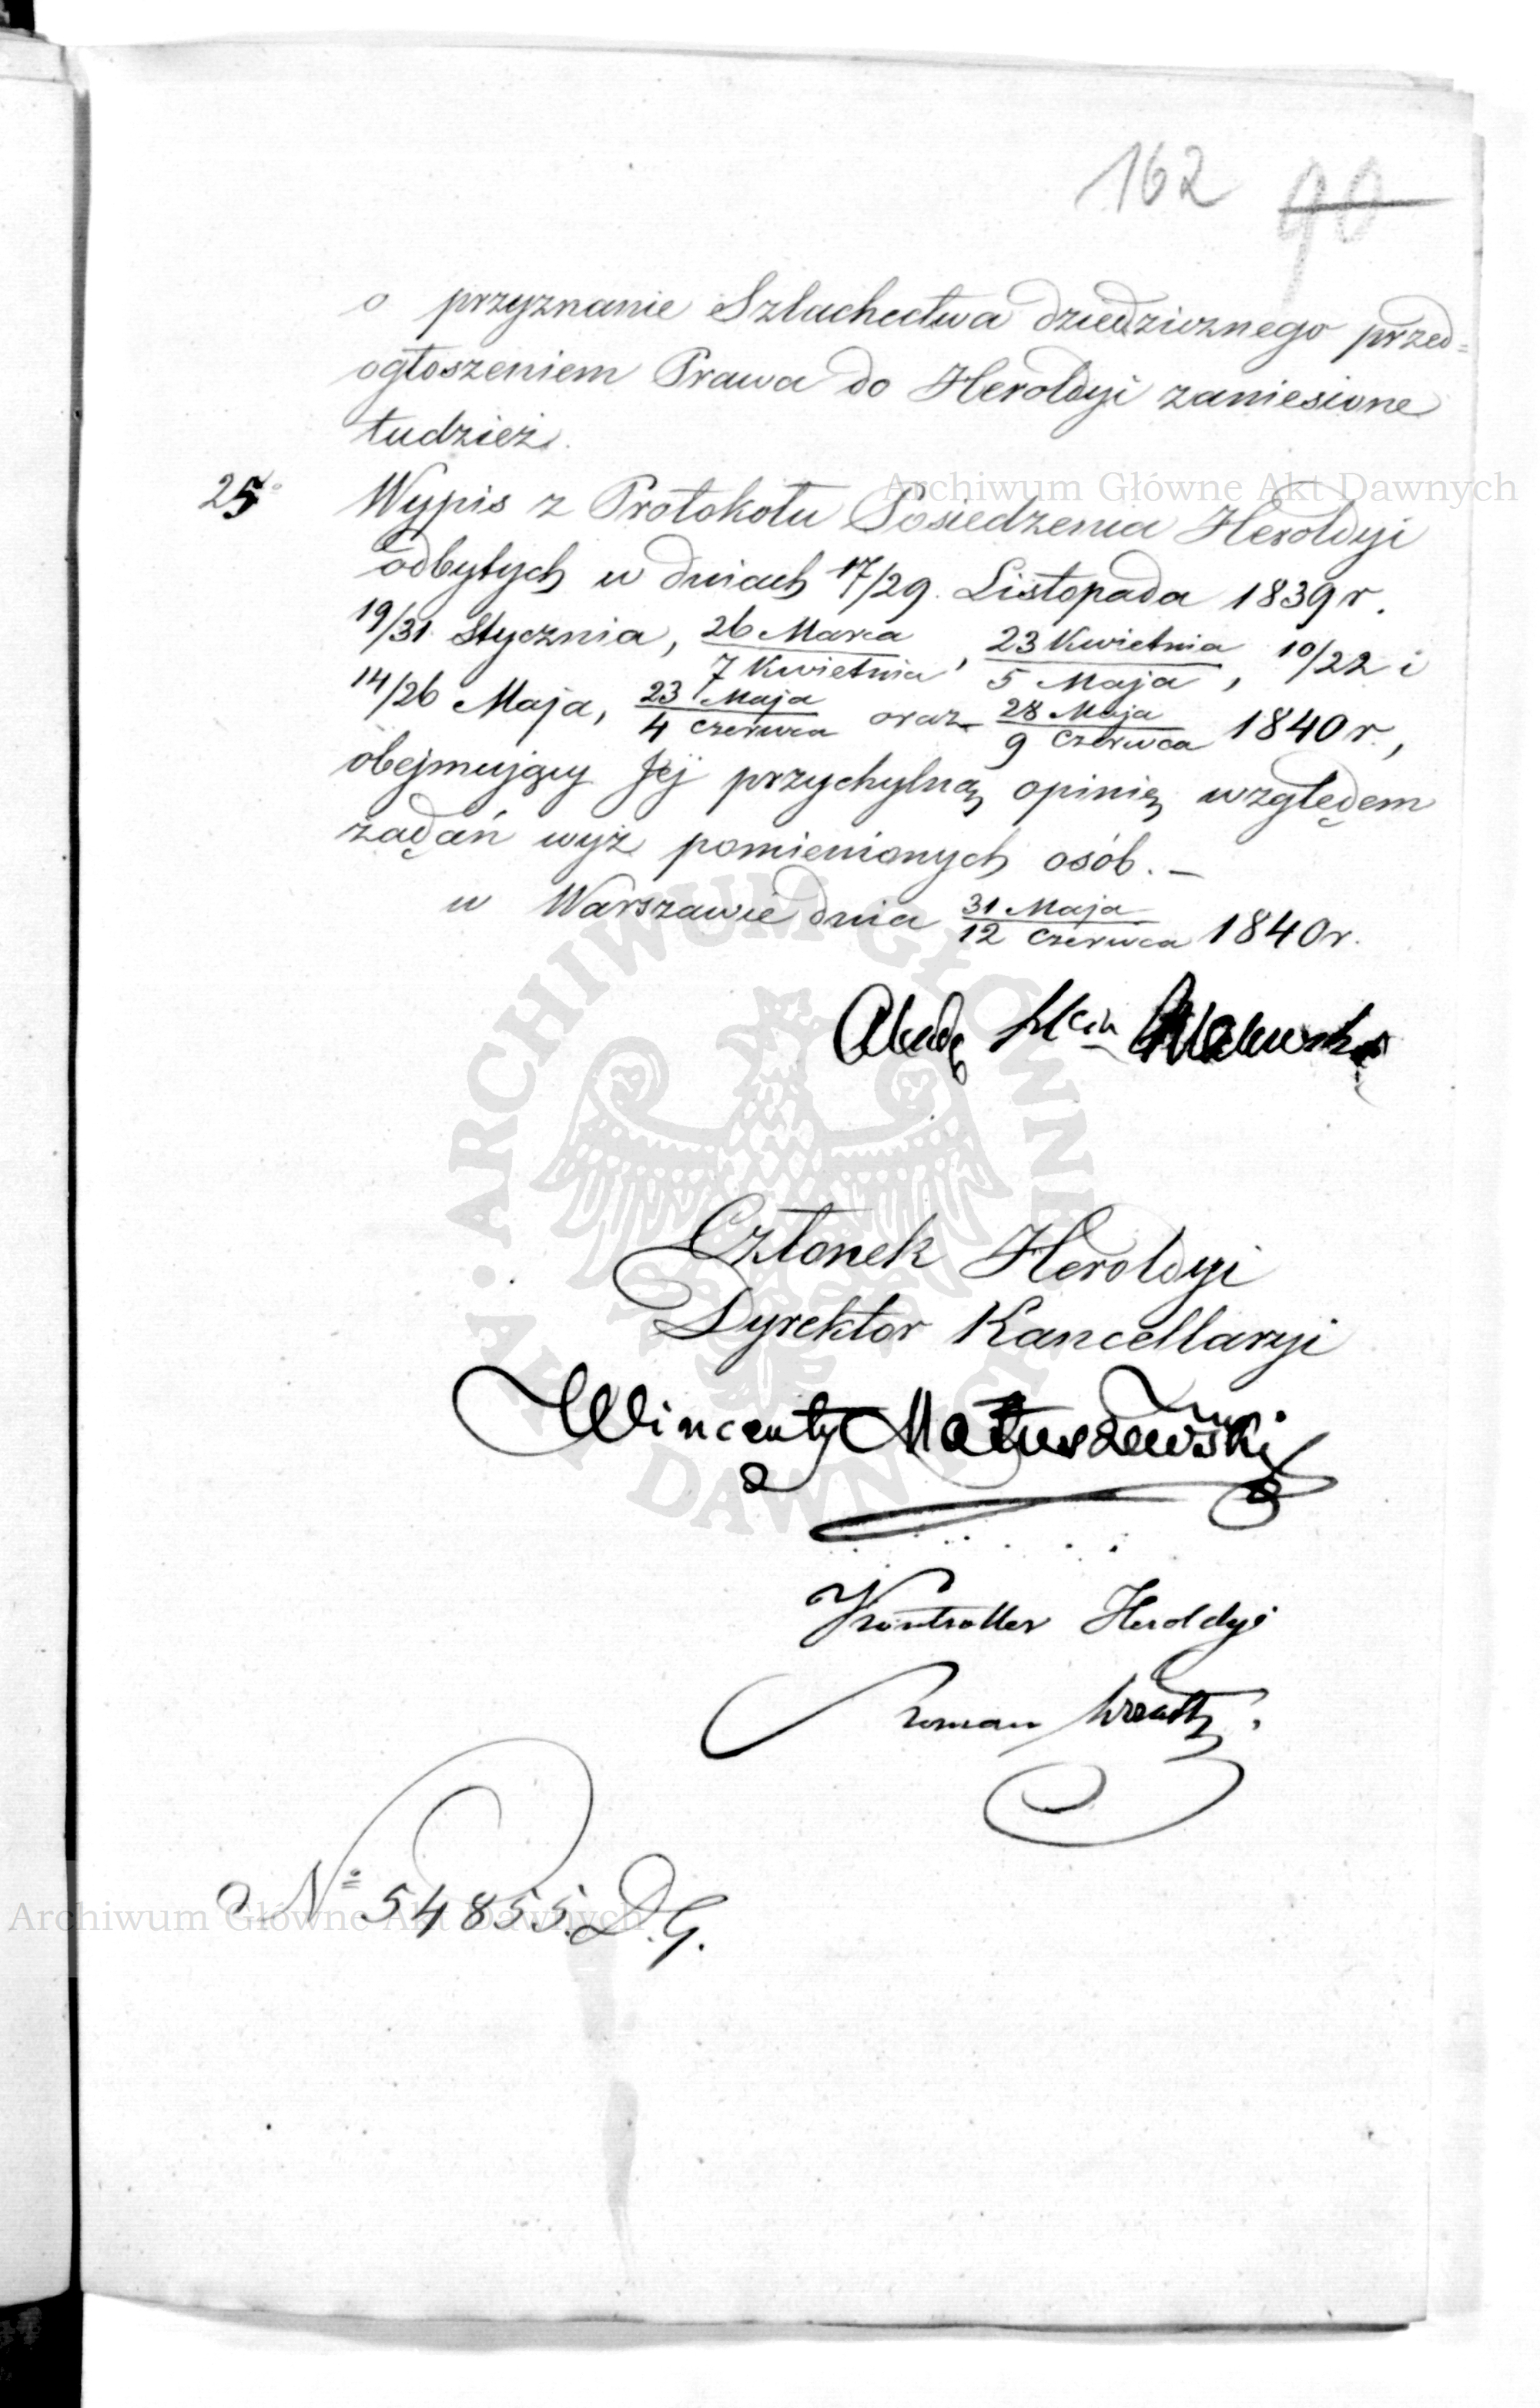 162 90
o przyznanie Szlachectwa dziedzicznego przed=
ogłoszeniem Prawa do Heroldyi zaniesione
tudzież.
Archiwum Główne Akt Dawnych
25° Wypis z Protokołu Posiedzenia Heroldyi
odbytych w dniach 17/29. Listopada 1839 r.
19/31 Stycznia, 26 Marca/7 Kwietnia, 23 Kwietnia/5 Maja, 10/22 i
14/26 Maja, 23 Maja/4 Czerwca oraz 28 Maja/9 Czerwca 1840 r.,
obejmujący Jéj przychylną opinię względem
żądań wyż pomienionych osób. —
w Warszawie dnia 31 Maja/12 Czerwca 1840 r.
ARCHIWUM GŁÓWNE AKT DAWNYCH
Członek Heroldyi
Dyrektor Kancellaryi
Wincenty Matuszewski
Kontroller Heroldyi
Roman
Nº 54855. D.G.
Archiwum Główne Akt Dawnych